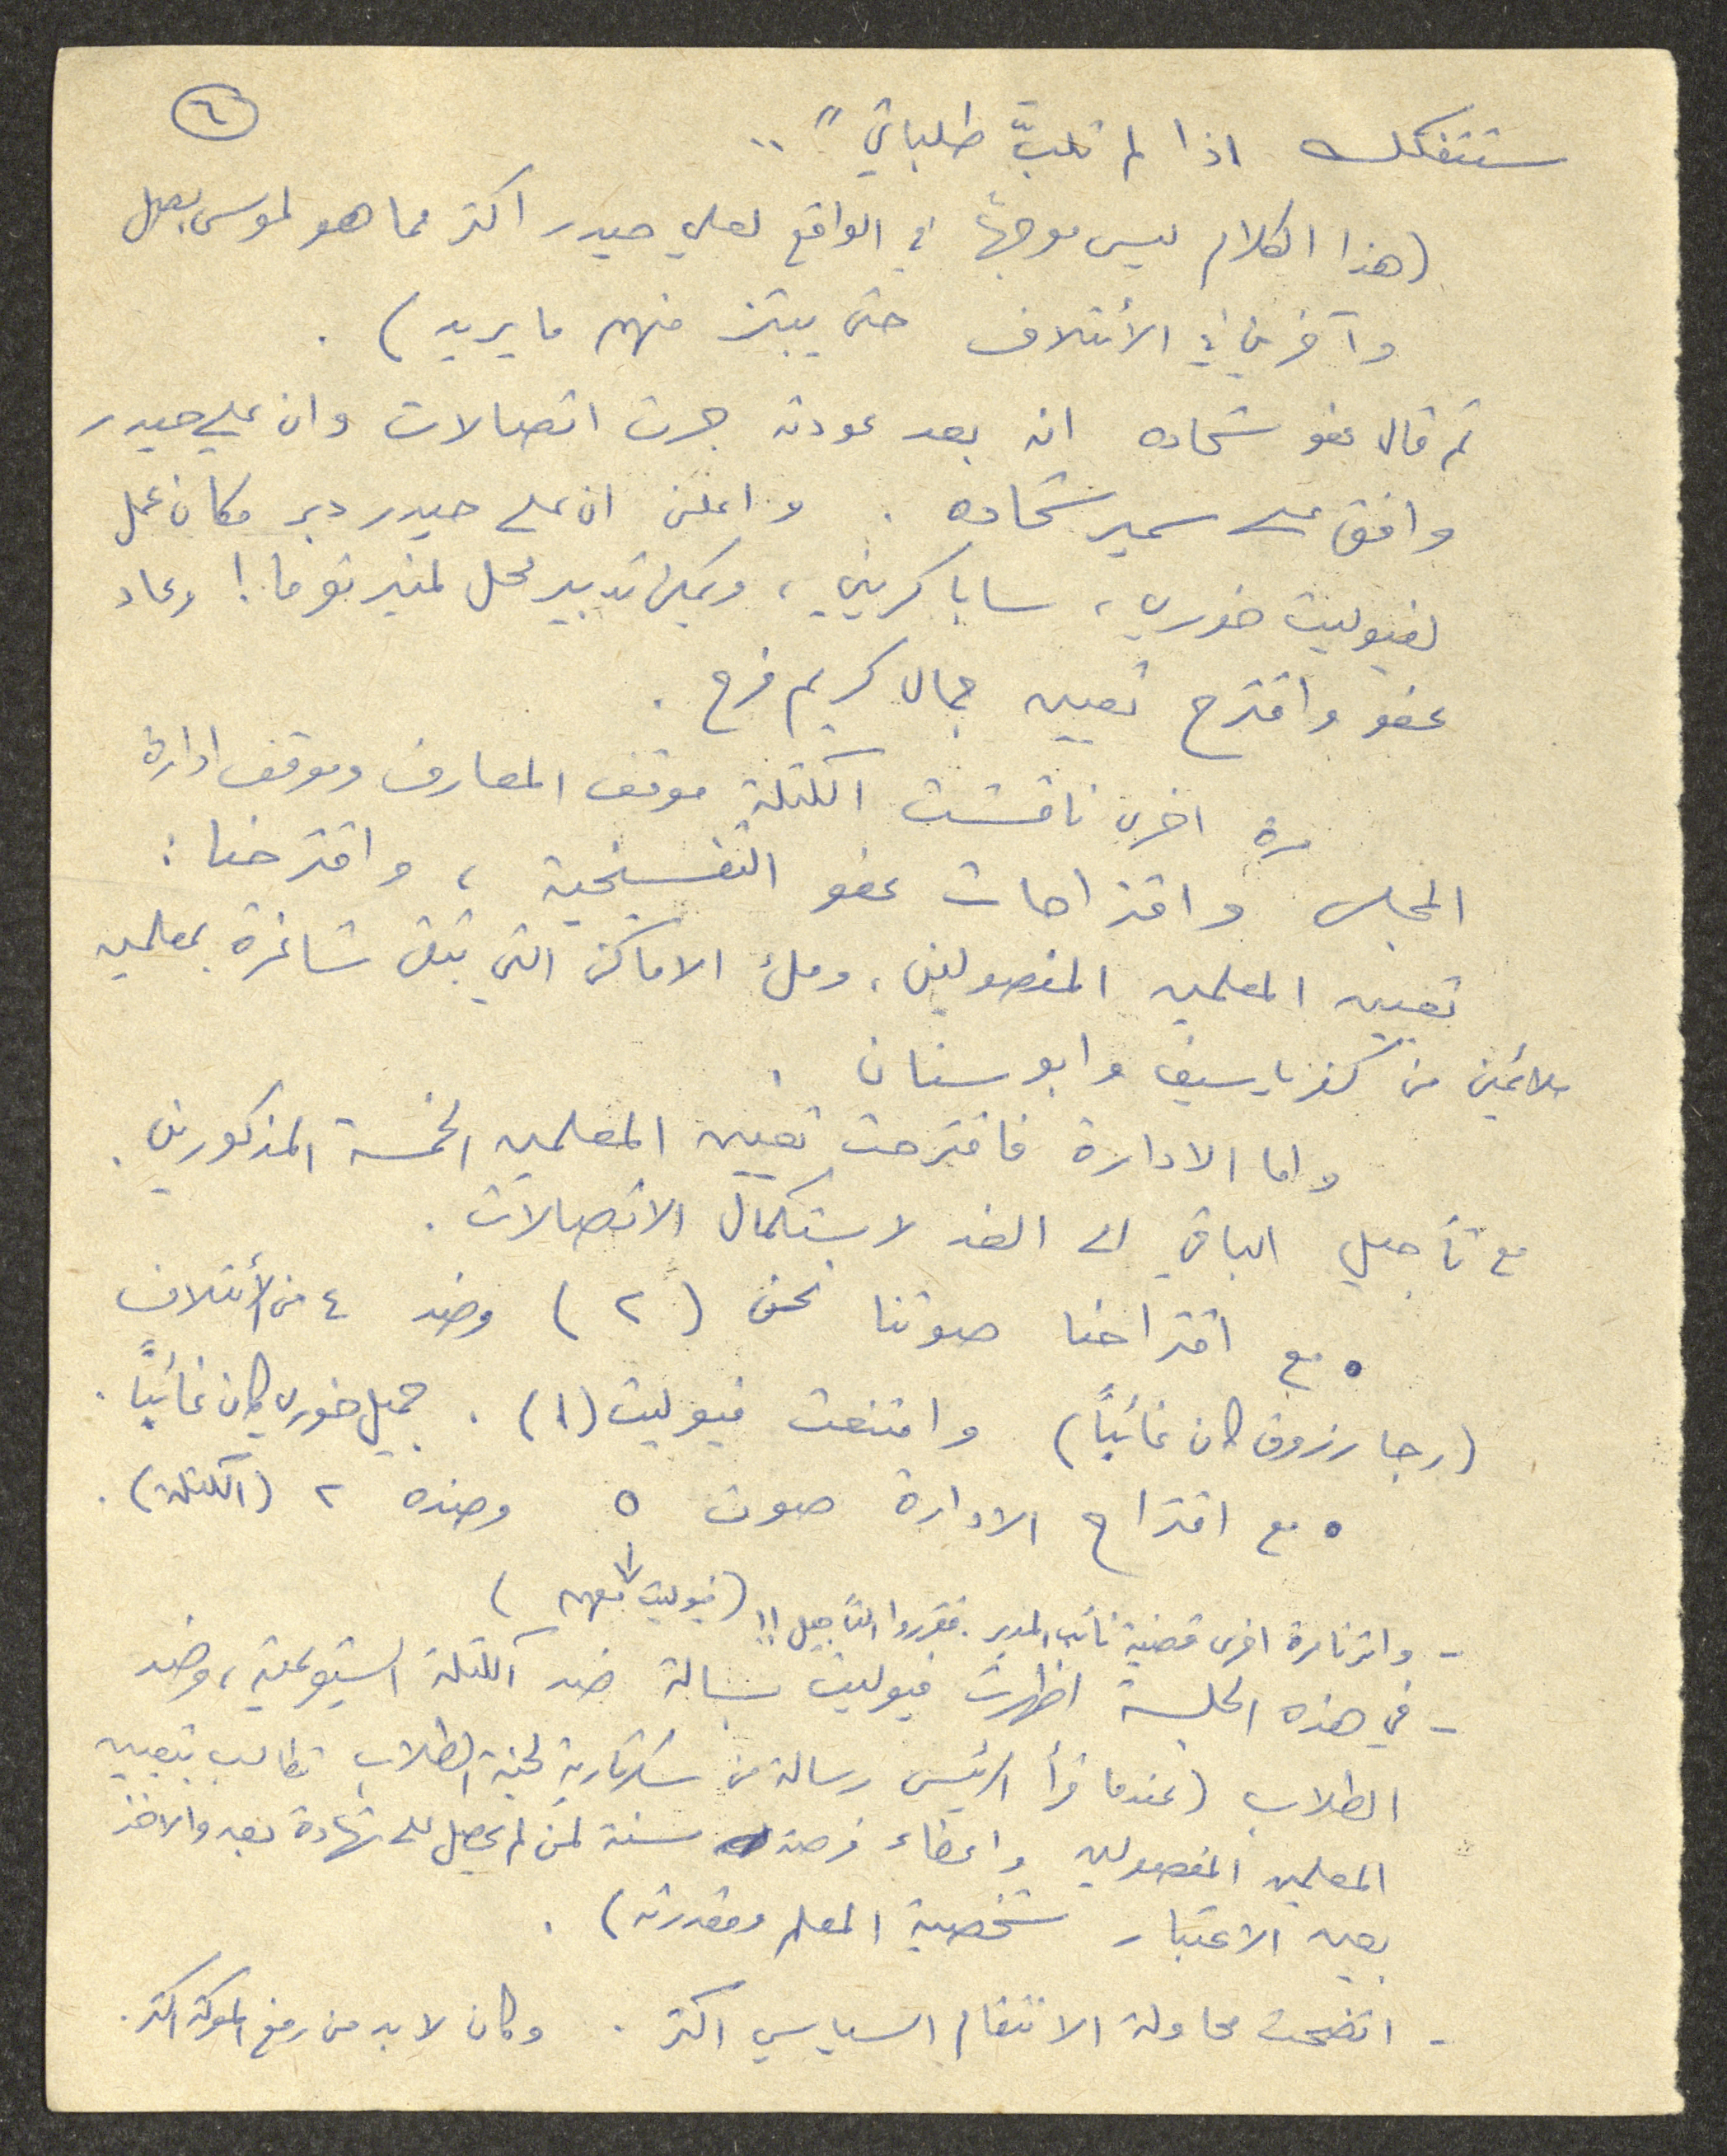 ٦
ستتفكك اذا لم تلبّ طلباتي" ..
(هذا الكلام ليس موجهاً في الواقع لعلي حيدر اكثر مما هو لموسى بصل
وآخرين في الأئتلاف حتى يبتز منهم ما يريد) .
ثم قال عفو شحاده انه بعد عودته جرت اتصالات وان علي حيدر
وافق على سمير شحاده . واعلن ان علي حيدر دبر مكان عمل
لفيوليت خوري ، سابا كريني ، ويمكن تدبير محل لمنير توما ! وعاد
عفو واقترح تعيين جمال كريم فرح .
مرة اخرى ناقشت الكتلة موقف المعارف وموقف ادارة
المجلس واقتراحات عفو التفسيخية ، واقترحنا :
تعيين المعلمين المفصولين ، وملء الاماكن التي تبقى شاغرة بمعلمين
ملائمين من كفر ياسيف وابو سنان .
واما الادارة فاقترحت تعيين المعلمين الخمسة المذكورين .
مع تأجيل الباقي الى الغد لاستكمال الاتصالات .
• مع اقتراحنا صوتنا نحن (٢) وضد ٤ من الأئتلاف
(رجا رزوق كان غائباً) وامتنعت فيوليت (١) . جميل خوري كان غائباً .
• مع اقتراح الادارة صوت ٥ وضده ٢ (الكتلة) .
(فيوليت معهم)
- واثرنا مرة اخرى قضية نائب المدير . فقرروا التأجيل !!
- في هذه الجلسة اظهرت فيوليت بسالة ضد الكتلة الشيوعية ، وضد
الطلاب (عندما قرأ الرئيس رسالة من سكرتارية لجنة الطلاب تطالب بتعيين
المعلمين المفصولين واعطاء فرصة سنة لمن لم يحصل على شهادة بعد والاخذ
بعين الاعتبار شخصية المعلم ومقدرته) .
- اتضحت محاولة الانتقام السياسي اكثر . وكان لا بد من رفع المعركة اكثر .